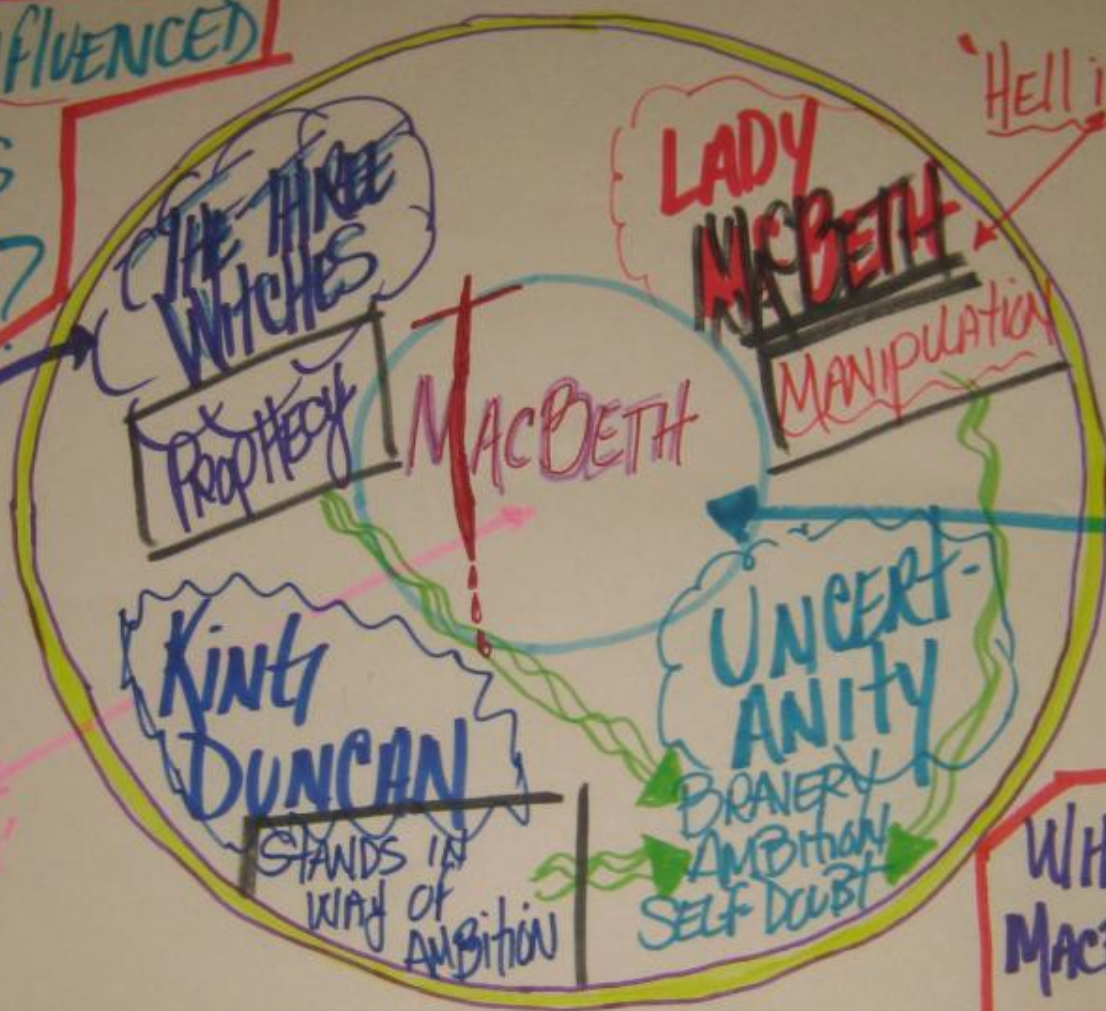 FLUENCED
S
?
THE THREE
WITCHES
PROPHECY
MACBETH
LADY
MACBETH
MANIPULATION
'HELL i
KING
DUNCAN
STANDS IN
WAY OF
AMBITION
UNCERT-
ANITY
BRAVERY
AMBITION
SELF-DOUBT
WH
MACB